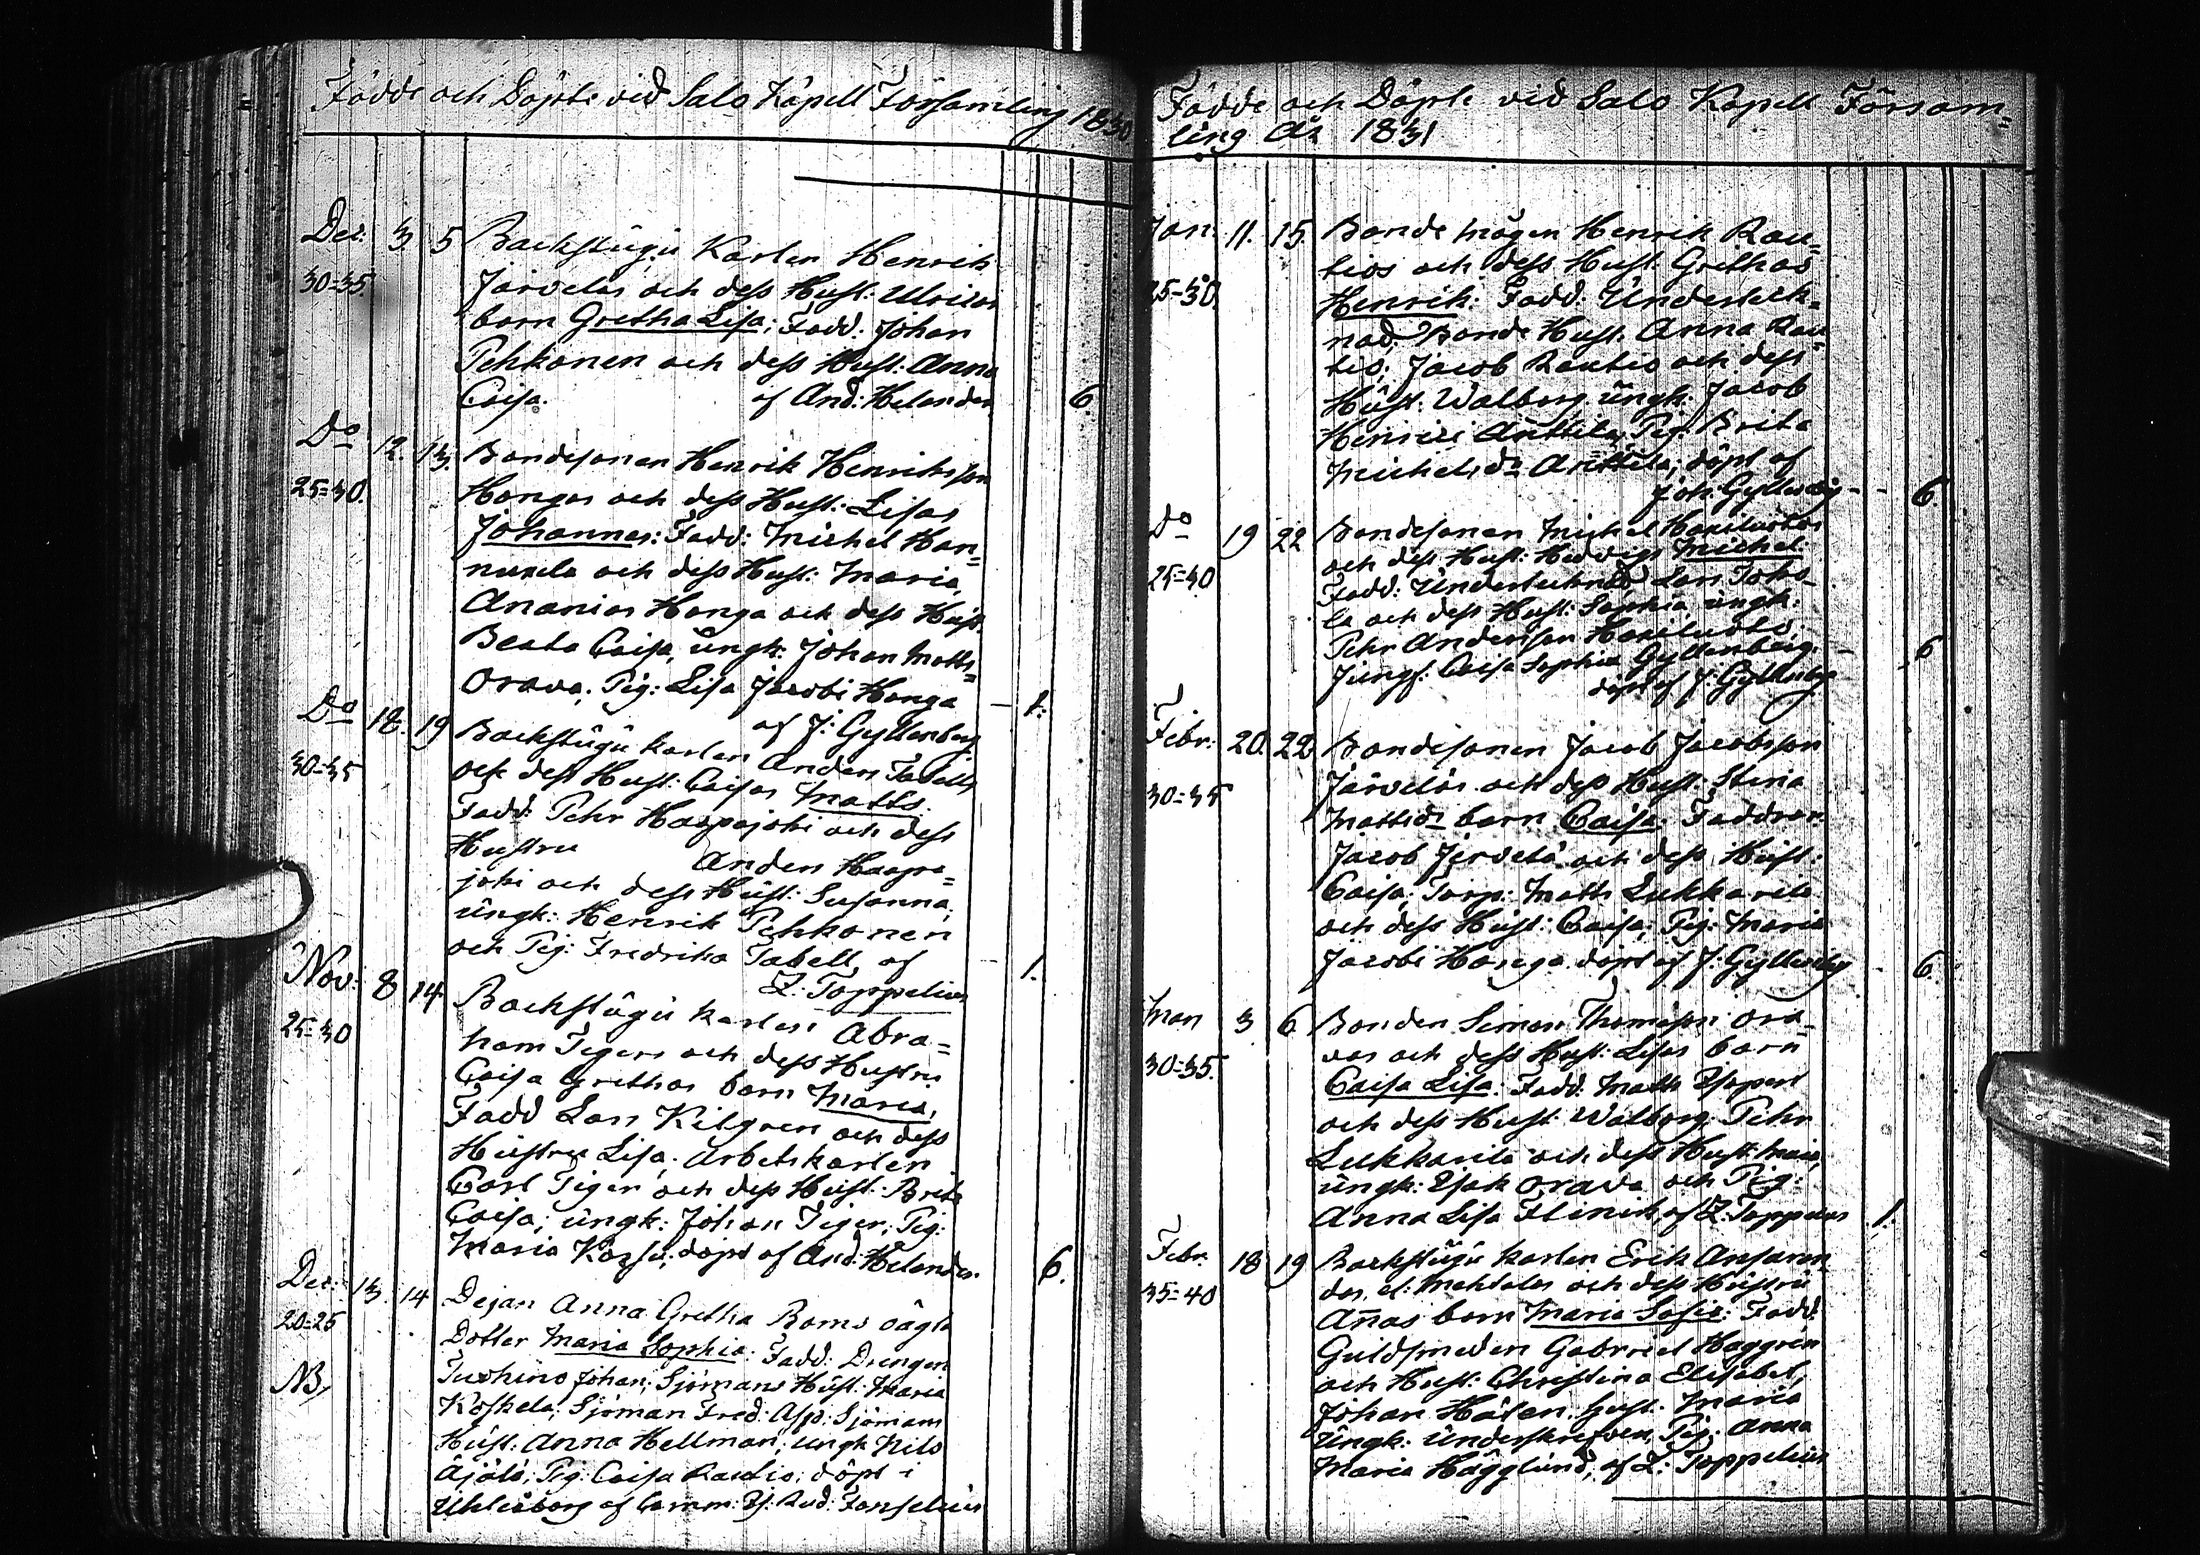 Födde och Döpte vid Salo Kapell Församling 1830
Dec: 3 5 Backstugu Karlen Henrik
30=35. Järvelas och dess Hust: Ulricas
barn Gretha Lisa; Fadd: Johan
Pehkonen och dess Hust: Anna
Caisa. af And: Helander 6.
Do 12. 13. Bondesonen Henrik Henriksson
25=30. Hongas och dess Hust: Lisas
Johannes: Fadd: Michel Han=
nuxela och dess Hust: Maria,
Ananias Honga och dess Hust.
Beata Caisa, ungk: Johan Matts=
Orava; Pig: Lisa Jacobi Honga
af J: Gyllenberg 1.
Do 18. 19 Backstugu karlen Anders Tabells
30=35 och dess Hust: Caisas Matts.
Fadd: Pehr Haapajoki och dess
Hustru Anders Haapa=
joki och dess Hust: Susanna;
ungk: Henrik Pehkonen
och Pig: Fredrika Tabell, af
Z: Toppelius 1.
Nov: 8 14. Backstugu karlen Abra=
25=30 ham Tigers och dess Hustru
Caisa Grethas barn Maria,
Fadd Lars Kilgren och dess
Hustru Lisa. Arbetskarlen
Carl Tiger och dess Hust: Brita
Caisa; ungk: Johan Tiger; Pig:
Maria döpt af And: Helander. 6.
Dec: 13. 14 Dejan Anna Gretha Roms oägta
20=25 Dotter Maria Sophia. Fadd: Drengen
NB, Johan; Sjömans Hust: Maria
Koskela; Sjöman Fred: Asp: Sjömans
Hust: Anna Hellman; ungk Nils
Äjälä; Pig: Caisa Rautio; döpt i
Uhleåborg af Comm: Rud: Fonselius
Födde och Döpte vid Salo Kapell Försam=
ling År 1831
Jan. 11. 15. Bonde mågen Henrik Rau=
25=30. tios och dess Hust. Grethas
Henrik: Fadd: Underteck=
nad, Bonde Hust. Anna Rau=
tio; Jacob Rautio och dess
Hust: Walborg ungk. Jacob
Henrici Anttila, Pig. Brita
Michelsdr Anttila; döpt af
Joh: Gyllenberg - - 6.
Do 19 22 Bondesonen Michel
25=30 och dess Hust: Hedvigs Michel
Fadd: Undertecknad Lars Joko-
la och dess Hust: Sophia, ungk:
Pehr Andersson
Jungf: Caisa Sophia Gyllenberg. 6
döpt af J: Gyllenberg
Febr: 20. 22 Bondesonen Jacob Jacobsson
30=35 Järveläs och dess Hust: Stina
Mattsdr barn Caisa. Faddrar
Jacob Järvelä och dess Hust:
Caisa; Torp: Matts Lukkarila
och dess Hust: Caisa; Pig: Maria
Jacobi Honga döpt af J: Gyllenberg 6.
Mars 3 6 Bonden Simon Thomesson Ora=
30=35. vas och dess Hust: Lisas barn
Caisa Lisa. Fadd. Matts
och dess Hust: Walborg; Pehr
Lukkarila och dess Hust: Maria,
ungk: Isak Orava och Pig:
Anna Lisa Flinck, af Z: Toppelius 1.
Febr. 18 19 Backstugu karlen Erik Ansaren=
35=40 das, el: Mehtälas och dess Hustru
Annas barn Maria Sofia: Fadd.
Guldsmeden Gabriel Haggren
och Hust: Christina Elisabet,
Johan Hälen, Hust. Maria
Ungk: Underskrefven, Pig: Anna
Maria Hägglund, af Z: Toppelius